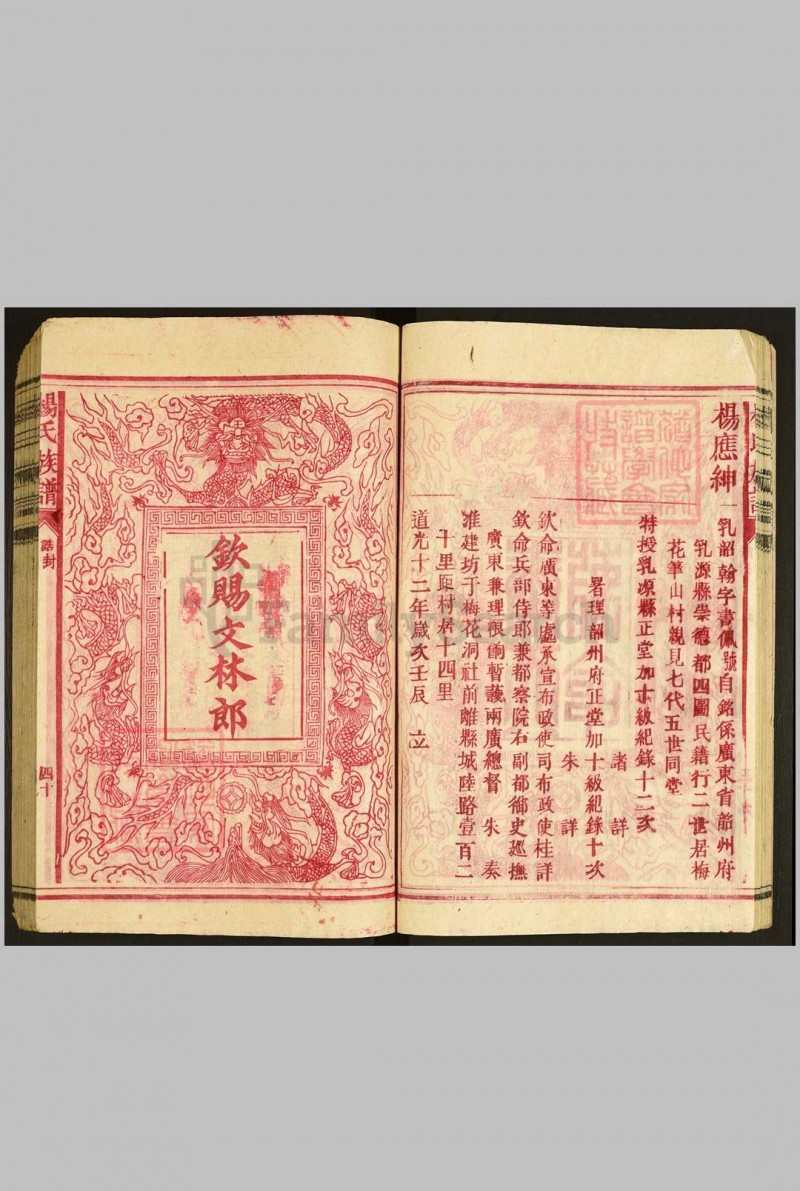 楊應紳
一乳韶翰字書佩號自銘係廣東省韶州府
乳源縣崇德都四圖民籍行二世居梅
花華山村親見七代五世同堂
特授乳源縣正堂加十級紀錄十二次 諸 詳
署理韶州府正堂加十級紀錄十次 朱 詳
欽命廣東等處承宣布政使司布政使桂詳
欽命兵部侍郎兼都察院右副都御史廵撫
廣東兼理糧餉暫護兩廣總督 朱 奏
准建坊于梅花洞社前離縣城陸路壹百二
十里與村居十四里
道光十二年歲次壬辰 立
欽賜文林郎
楊氏族譜
誥封
四十
FamilySearch